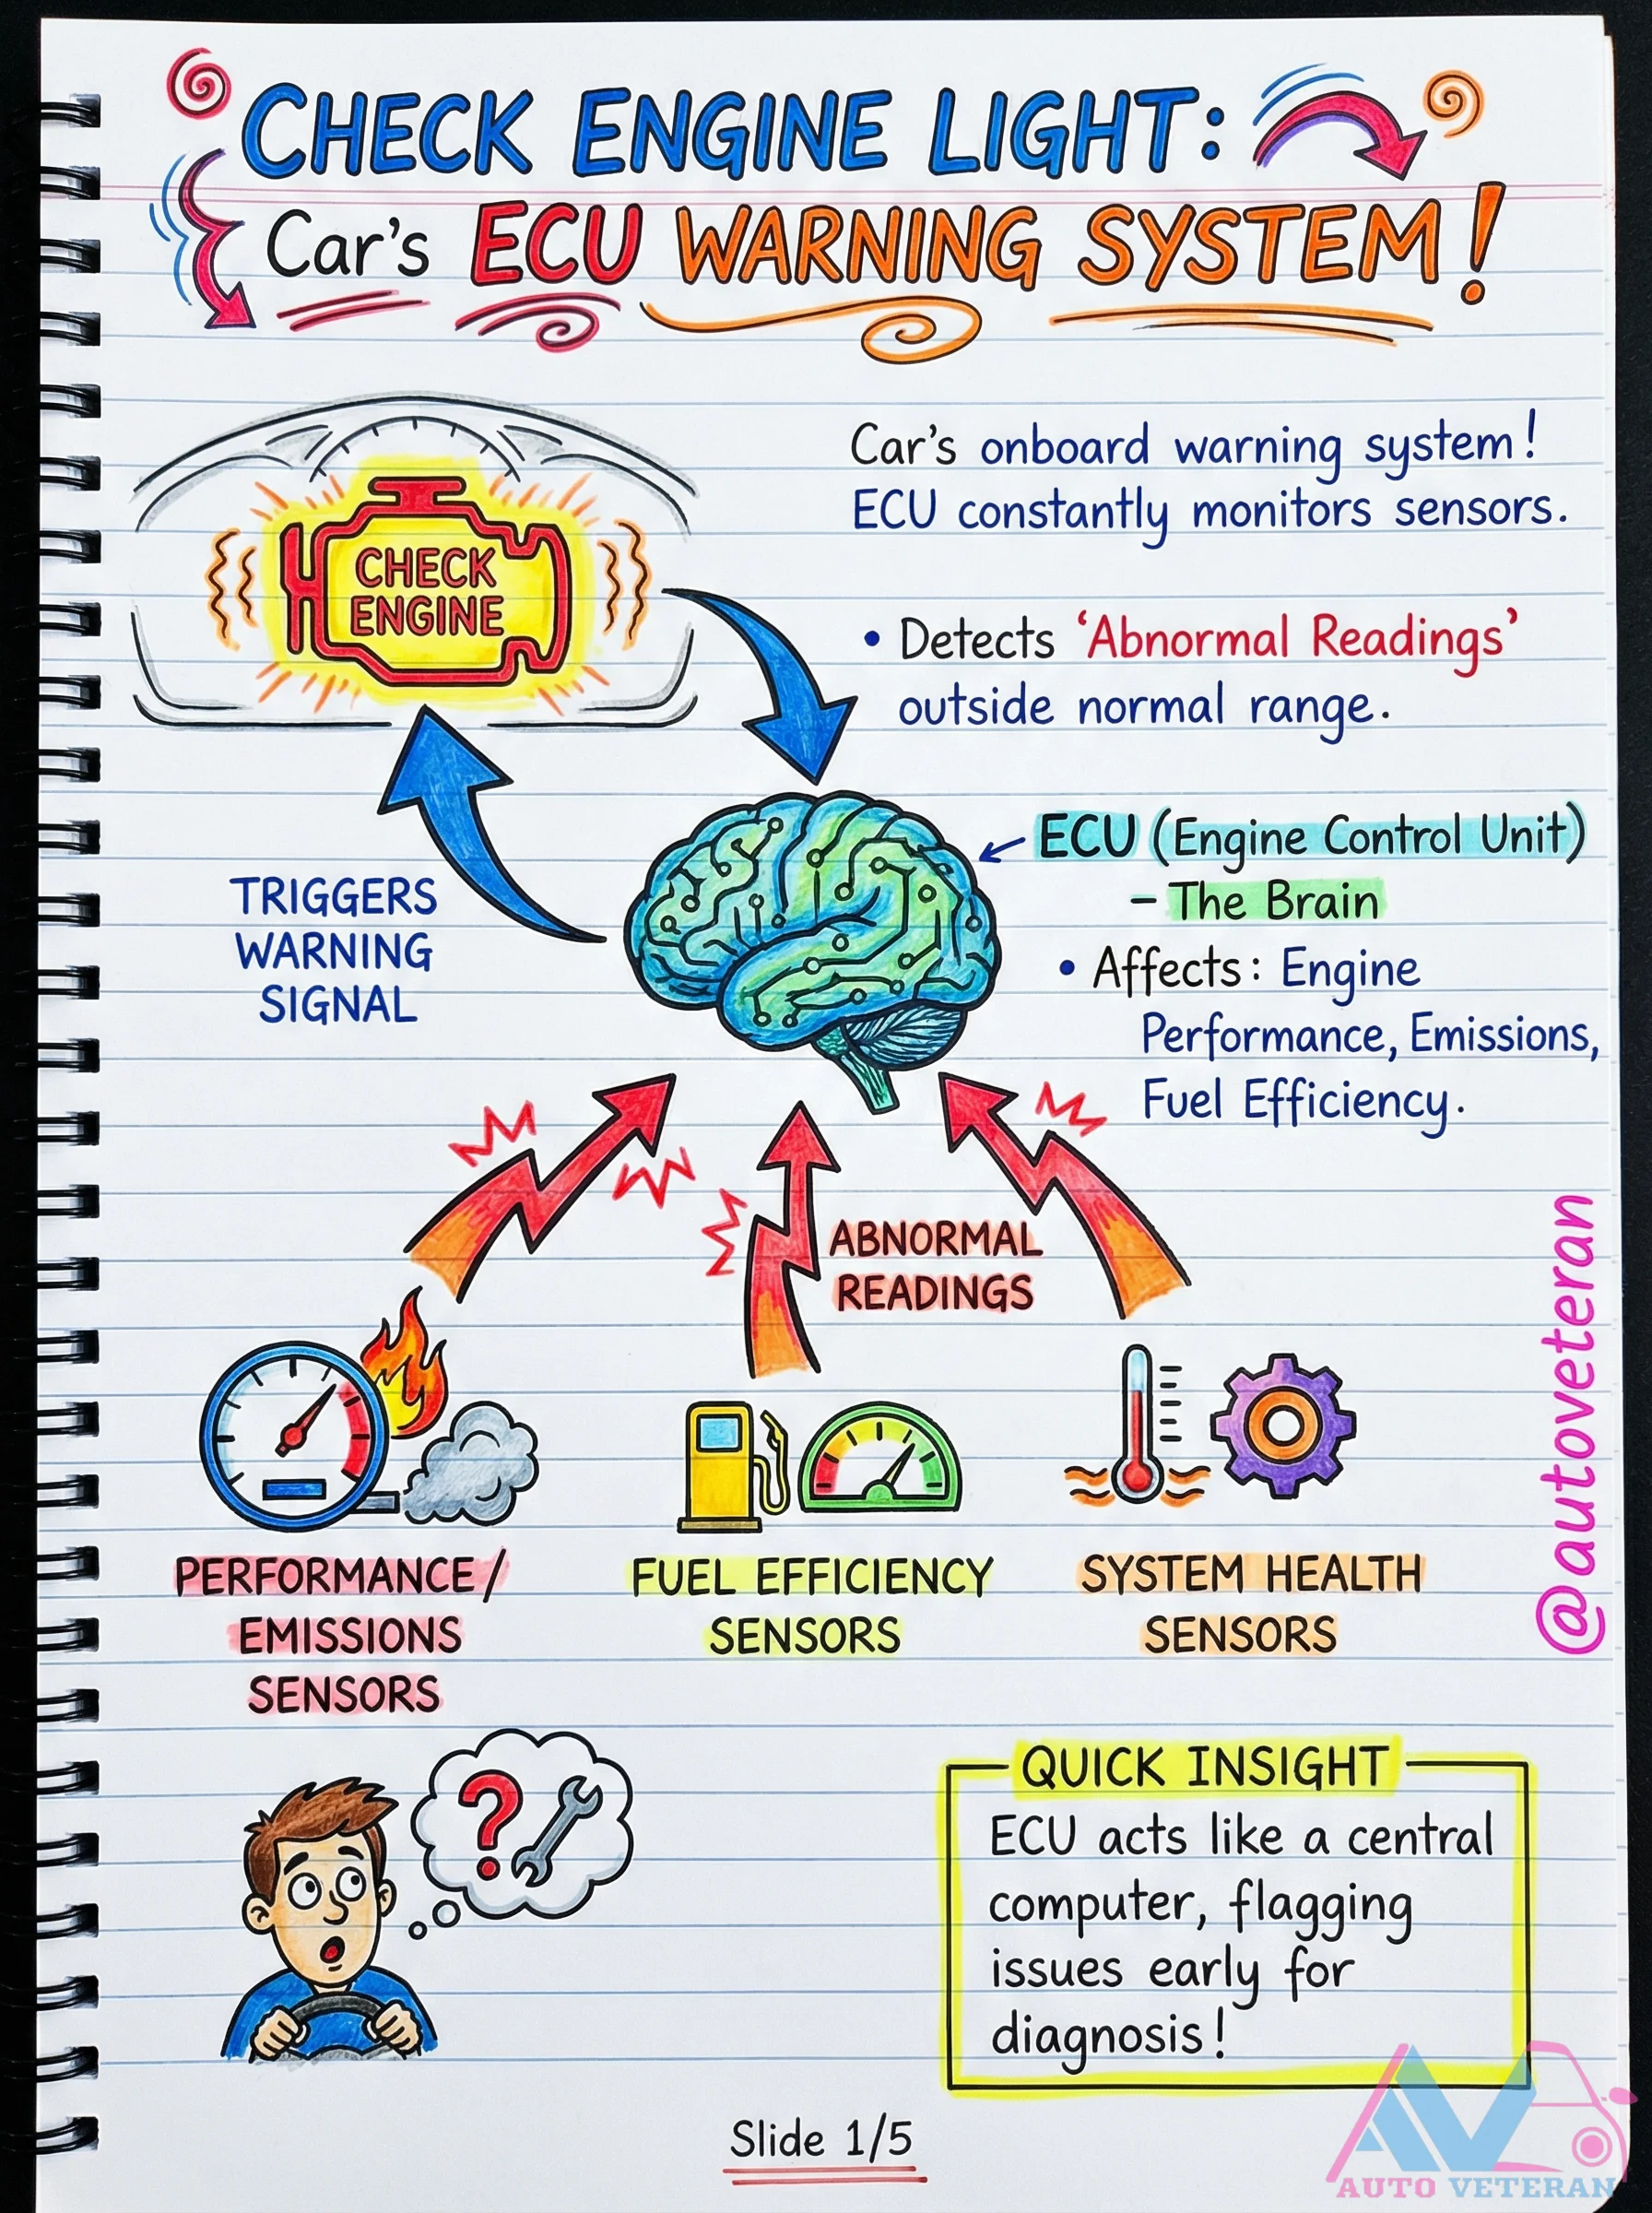 CHECK ENGINE LIGHT:
Car's ECU WARNING SYSTEM!
CHECK
ENGINE
Car's onboard warning system!
ECU constantly monitors sensors.
• Detects 'Abnormal Readings'
outside normal range.
TRIGGERS
WARNING
SIGNAL
ECU (Engine Control Unit)
- The Brain
• Affects: Engine
Performance, Emissions,
Fuel Efficiency.
ABNORMAL
READINGS
PERFORMANCE/
EMISSIONS
SENSORS
FUEL EFFICIENCY
SENSORS
SYSTEM HEALTH
SENSORS
@autoveteran
?
QUICK INSIGHT
ECU acts like a central
computer, flagging
issues early for
diagnosis!
Slide 1/5
AV
AUTO VETERAN